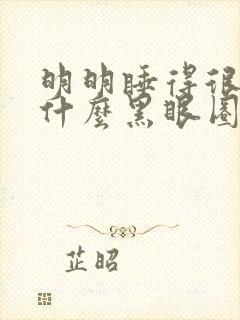 明明睡得很
什麼黑眼圈
芷昭